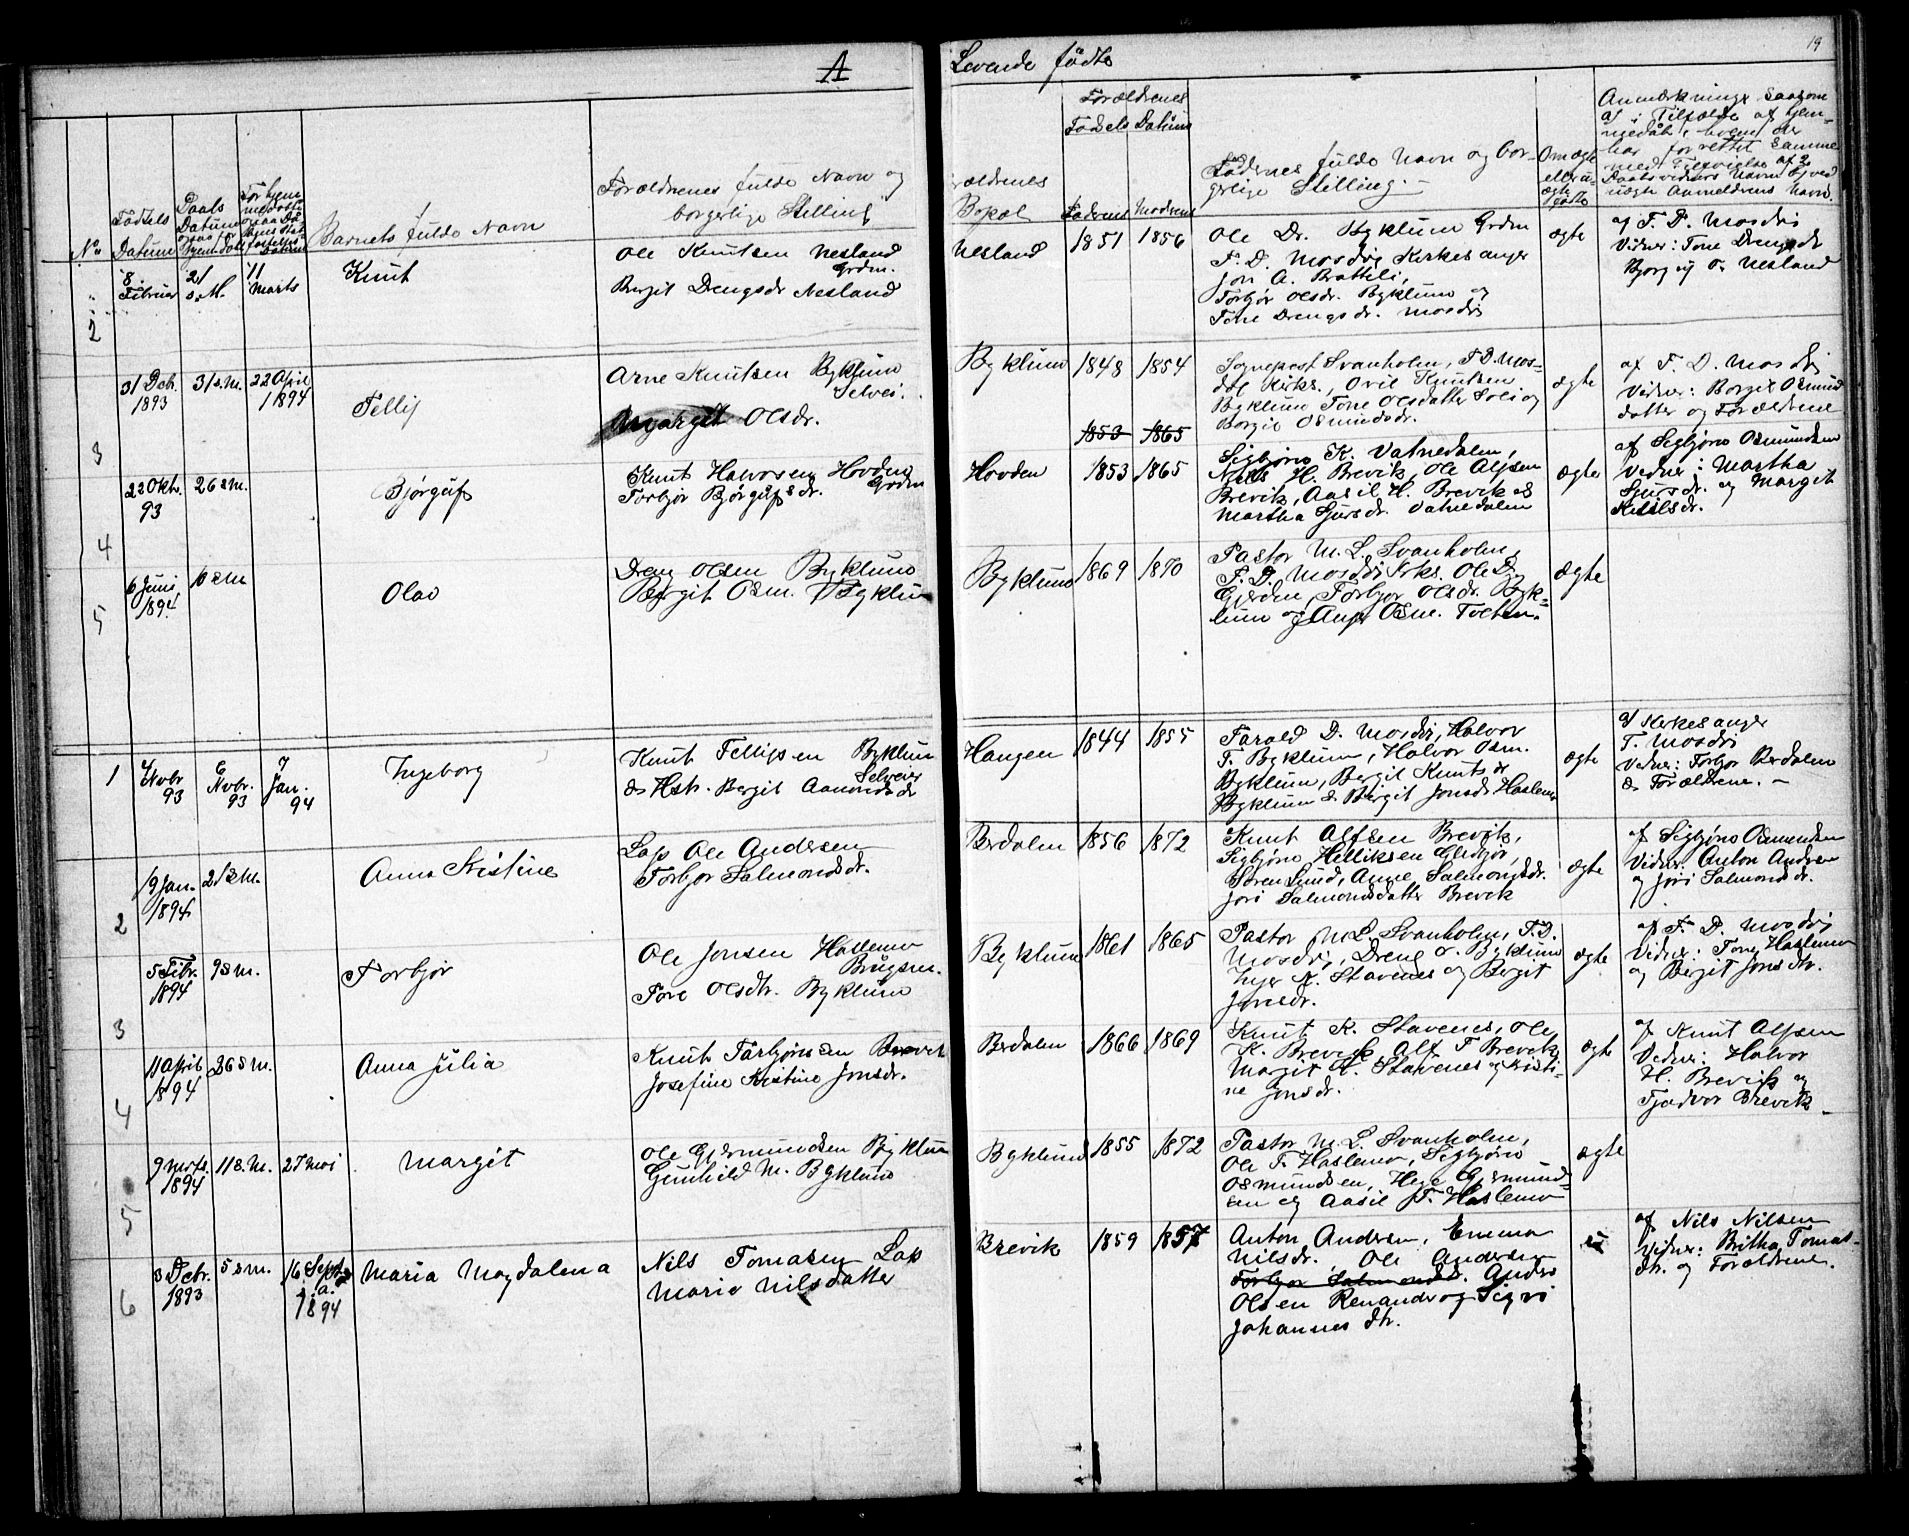 A
Levende fødte
19
No
Fødsels Datum
Daabs Datum
Barnets fulde Navn
Forældrenes fulde Navn og
borgerlige Stilling
Forældrenes
Fødsels Datum
Forældrenes
Bopæl
Faderens
Moderens
Faddernes fulde Navn og bor-
gerlige Stilling.
Om ægte
eller u-
ægte
født
2
8 Februar
21 s. M.
11 Marts
Knut
Ole Knutsen Nesland
Grdm.
Bergit Drengsdr Nesland
Nesland
1851
1856
Ole Dr. Byklum Grdm
T. D. Mosdøl Kirkesanger
Jon A. Brotteli,
Torbjør Olsdr. Byklum og
Tone Drengsdr. Mosdøl
ægte
af T. D. Mosdøl
Vidner: Tone Drengsdr
Bjorg og O. Nesland
3
31 Dcb.
1893
31 s. M.
22 April
1894
Tellef
Arne Knutsen Byklum
Selvei.
Margit Olsdr.
Byklum
1848
1854
Sogneprest Svanholm, T. D. Mos-
døl Kirks., Knutsen
Byklum Tone Olsdatter og
Borgil Osmundsdr.
ægte
af T. D. Mosdøl
Vidner: Borgil Osmunds
datter og Forældrene
1853
1865
4
22 Okt.
93
26 s. M.
Bjørguf
Knut Halvorsen Hovden
Grdm
Torbjør Bjørgufsdr.
Hovden
1853
1865
Sigbjørn K. Vatnedalen,
Nils H. Brevik, Ole Alfsen
Brevik, Aasil H. Brevik og
Martha Sjursdr. Vatnedalen
ægte
af Sigbjørn Osmundsen
Vidner: Martha
Sjursdr. og Margit
Kittilsdr.
5
6 Juni
1894
10 s. M.
Olav
Dreng Olsen Byklum
Bergit Osm. Byklum
Byklum
1869
1870
Pastor M. L. Svanholm,
T. D. Mosdøl Krks. Ole D.
Gjerden, Torbjør Olsdr. Byk-
lum og Osm.
ægte
1
4 Novbr
93
6 Novbr.
93
7 Jan.
94
Ingeborg
Knut Tellefsen Byklum
Selveier
& Hstr. Bergit Aamondsdr
Haugen
1844
1855
Tarald D. Mosdøl, Halvor
T. Byklum, Halvor Osm.
Byklum, Bergit Knutsdr
Byklum & Bergit Jonsdr Haslemo
ægte
af Kirkesanger
T. Mosdøl
Vidner: Torbjør Berdalen
& Forældrene. —
2
19 Jan.
1894
21 s. M.
Anna Kristine
Lap Ole Andersen
Torbjør Salmondsdr.
Berdalen
1856
1872
Knut Alfsen Brevik,
Sigbjørn Helliksen
Søren Lund, Anne Salmondsdr.
Jori Salmondsdatter Brevik
ægte
af Sigbjørn Osmundsen
Vidner: Anton Anders
og Jori Salmondsdr.
3
5 Febr.
1894
9 s. M.
Torbjør
Ole Jonsen Haslemo
Brugsm.
Tone Olsdtr. Byklum
Byklum
1861
1865
Pastor M. L. Svanholm, T. D.
Mosdøl, Dreng O. Byklum
K. Stavenes og Bergit
Jonsdr.
ægte
af T. D. Mosdøl
Vidner: Tone Haslemo
og Bergit Jonsdtr.
4
11 April
1894
26 s. M.
Anna Julia
Knut Tarbjørnsen Brevik
Josefine Kristine Jonsdr.
Berdalen
1866
1869
Knut K. Stavenes, Ole
K. Brevik, Alf T Brevik,
Margit K. Stavenes og Kristi-
ne Jonsdr.
ægte
af Knut Alfsen
Vidner: Halvor
H. Brevik og
Tjodvor Brevik.
5
9 Marts.
1894
11 s. M.
27 Mai
Margit
Ole Gjermundsen Byklum
Gunhild M. Byklum
Byklum
1855
1872
Pastor M. L. Svanholm,
Ole T. Haslemo, Sigbjørn
Osmundsen, Hege Gjermund-
sen og Aasil T. Haslemo
ægte
6
3 Dcbr.
1893
5 s. M.
16 Sept.
1894
Maria Magdalena
Nils Tomasen Lap
Maria Nilsdatter
Brevik
1859
1857
Anton Andersen, Emma
Nilsdr, Ole Andersen
Torbjør Salmondsdr. Anders
Olsen Renander og Sigri
Johannesdtr.
af Nils Nilsen
Vidner: Britha Tomas-
dtr. og Forældrene.